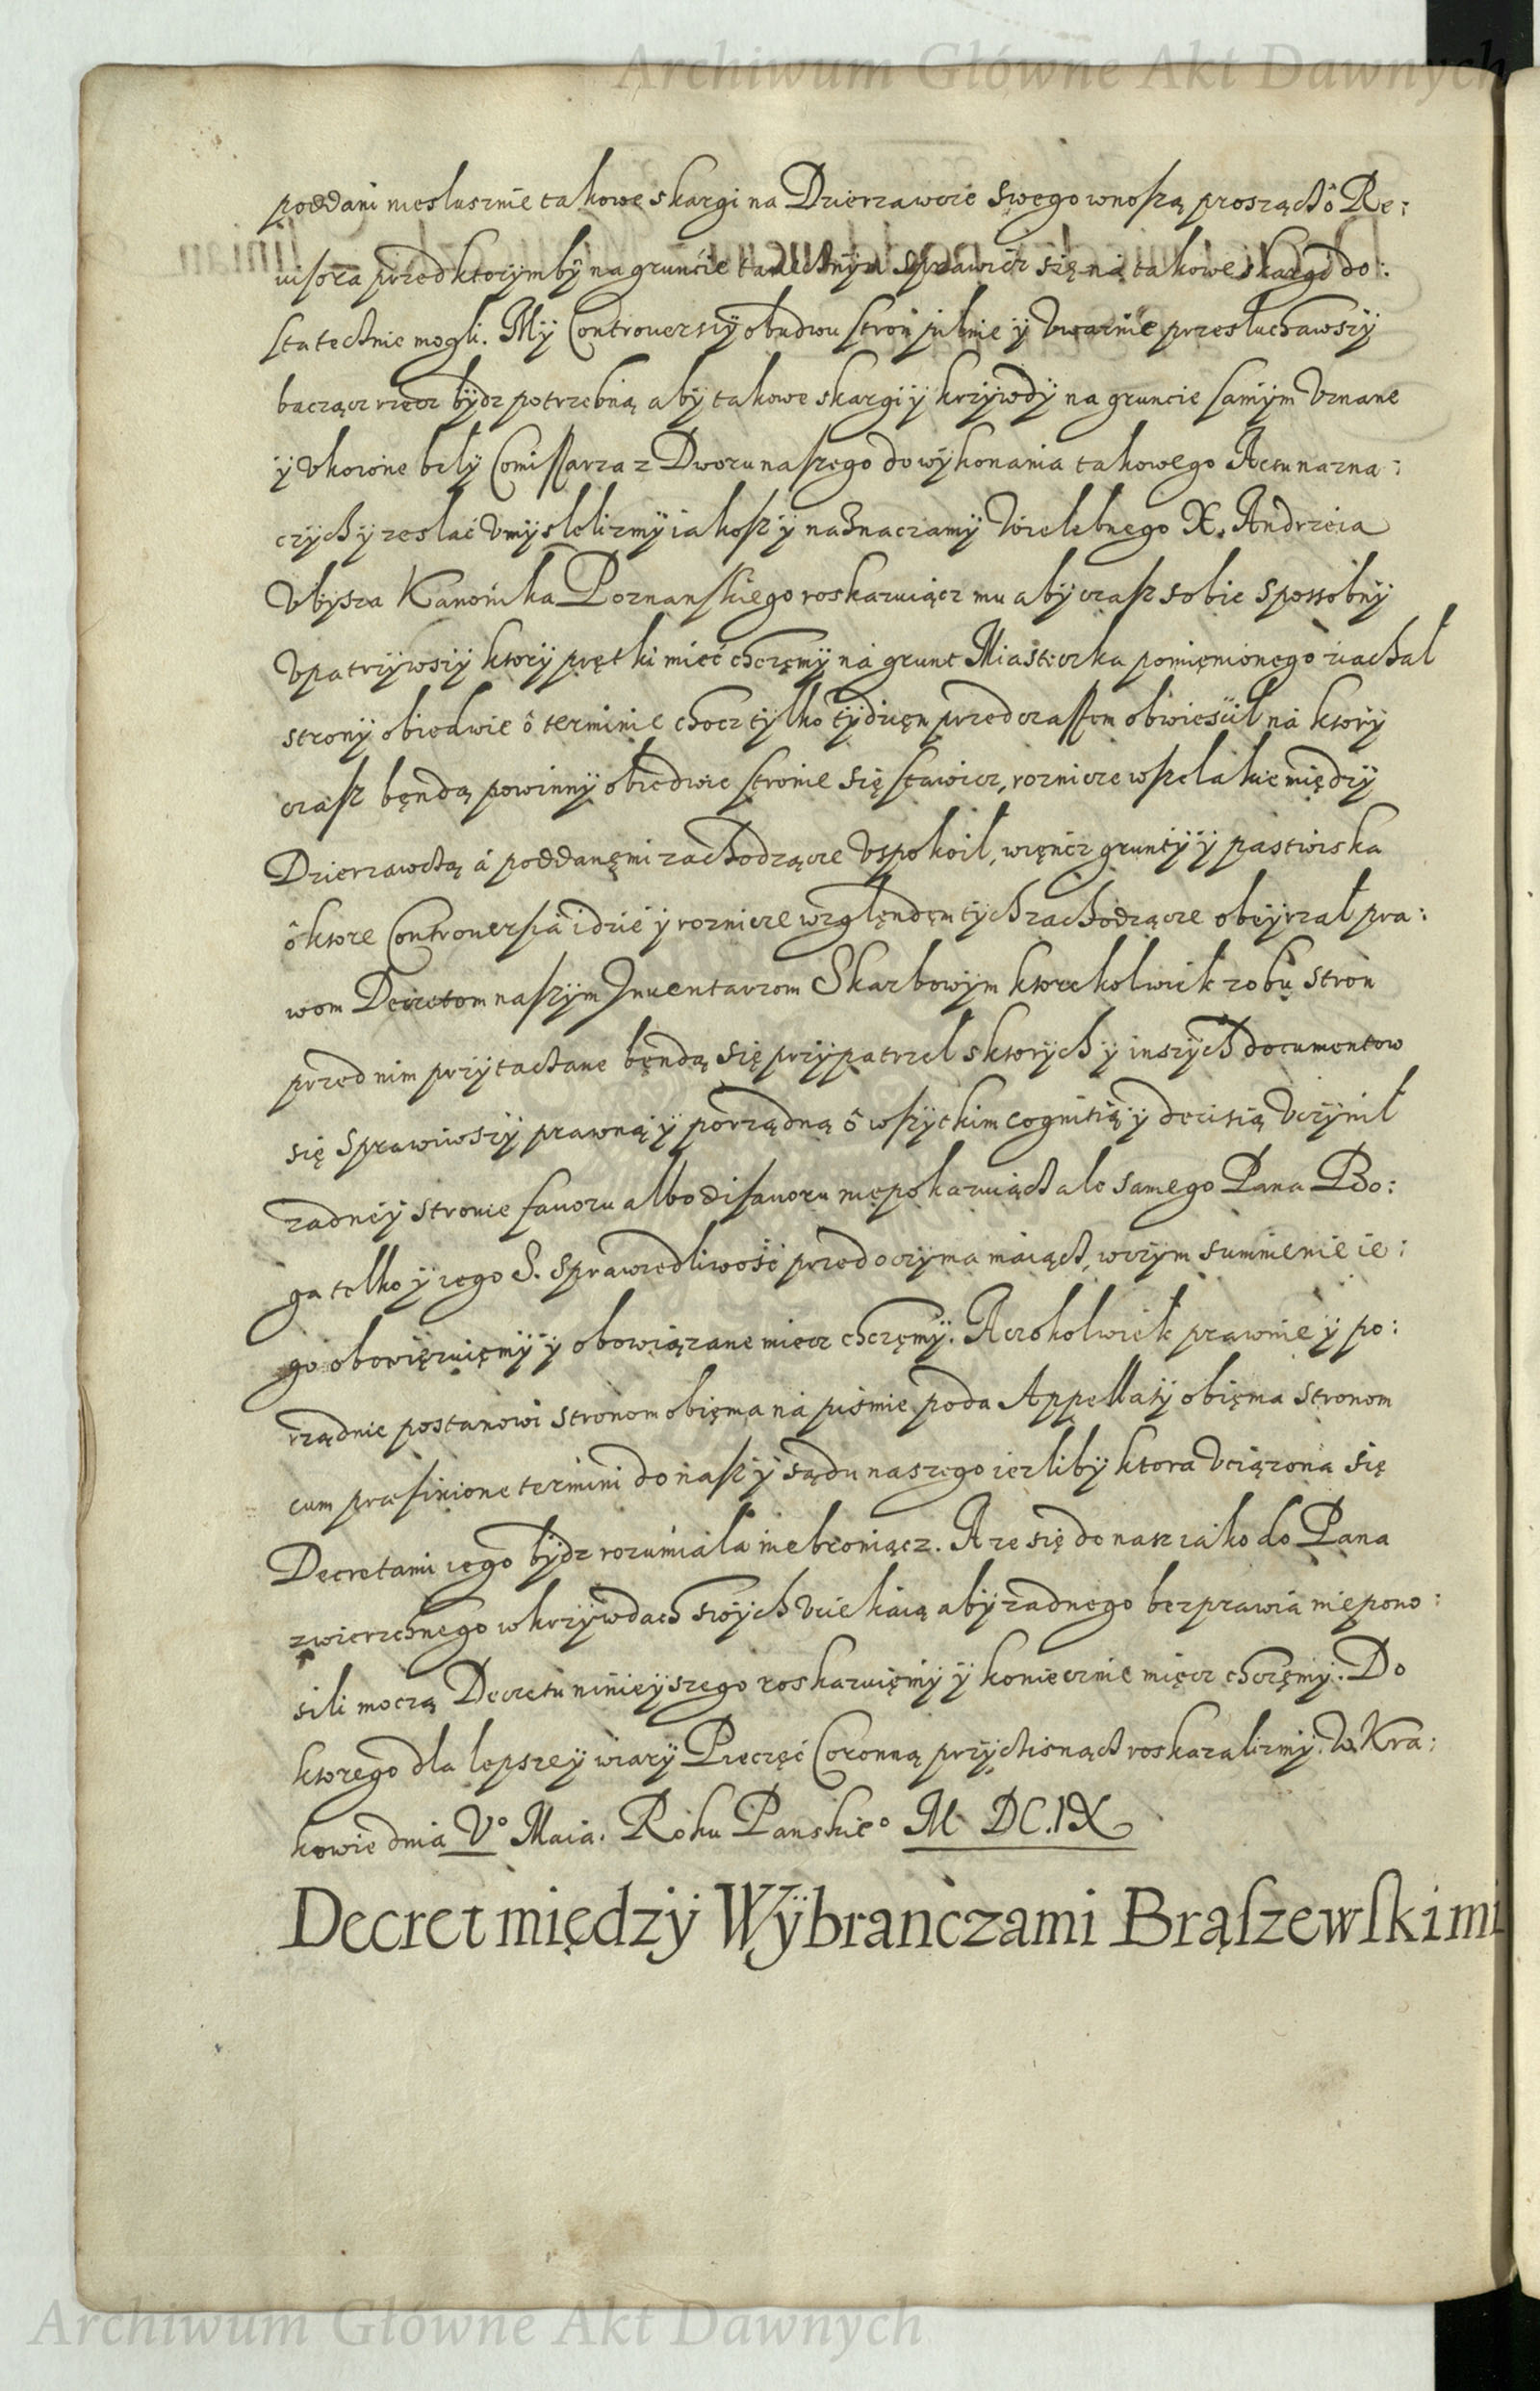 Archiwum Główne Akt Dawnych
poddani niesłusznie takowe skargi na Dzierzawcie swego wnoszą proszącz ô Re:
uisora przed ktorym by na gruncie tamecznym sprawicz się na takowe skargi do:
statecznie mogli. My Controuersiy obudwu stron pilnie y Uwaznie przesłuchawszy
baczącz rzecz bydz potrzebną aby takowe skargi y krzywdy na gruncie samym Uznane
y Ukoione były Comissarza z Dworu naszego do wykonania takowego Actu nazna:
czych y zesłać Umyslelizmy iakosz y naznaczamy Wielebnego X. Andrzeia
Ubysza Kanonika Poznanskiego roskazuiącz mu aby czasz sobie sposobny
Upatrzywszy ktory prętki mieć chczęmy na grunt Miasteczka pomięnionego ziachał
strony obiedwie ô terminie chocz tylko tydzięn przed czassem obwiescił na ktory
czasz będą powinny obiedwie stronie się stawicz, roznicze wszelakie między
Dzierzawczą á poddanęmi zachodzącze Uspokoił, więncz grunty y pastwiska
ô ktore Controuersia idzie y roznicze względem tych zachodzącze obeyrzał pra:
wom Decretom naszym Inuentarzom Skarbowym ktorekolwiek z obu stron
przed nim przytaczane będą się przypatrzel s ktorych y inszych documentow
się sprawiwszy prawną y porządną ô wszyckim cognitią y decisią Uczynił
zadney stronie fauoru albo disauoru niepokazuiącz ale samego Pana Bo:
ga telko y iego S. sprawiedliwość przed oczyma maiącz, w czym sumnienie ie:
go obowięzuięmy y obowiązane miecz chczęmy. A czokolwiek prawnie y po:
rządnie postanowi stronom obięma na pismie poda Appellaty obięma stronom
cum præfinione termini do nasz y sądu naszego iezliby ktora Uciązona się
Decretami iego bydz rozumiała niebroniącz. A ze się do nasz iako do Pana
zwierzchnego w krzywdach swych Uciekaią aby zadnego bezprawia niepono:
sili moczą Decretu ninieyszego roskazuięmy y koniecznie miecz chczęmy. Do
ktorego dla lepszey wiary Pieczęć Coronną przycisnącz roskazalizmy. W Kra:
kowie dnia V° Maia. Roku Panskie° M DC.IX
Decret między Wybranczami Brąszewskimi
Archiwum Główne Akt Dawnych